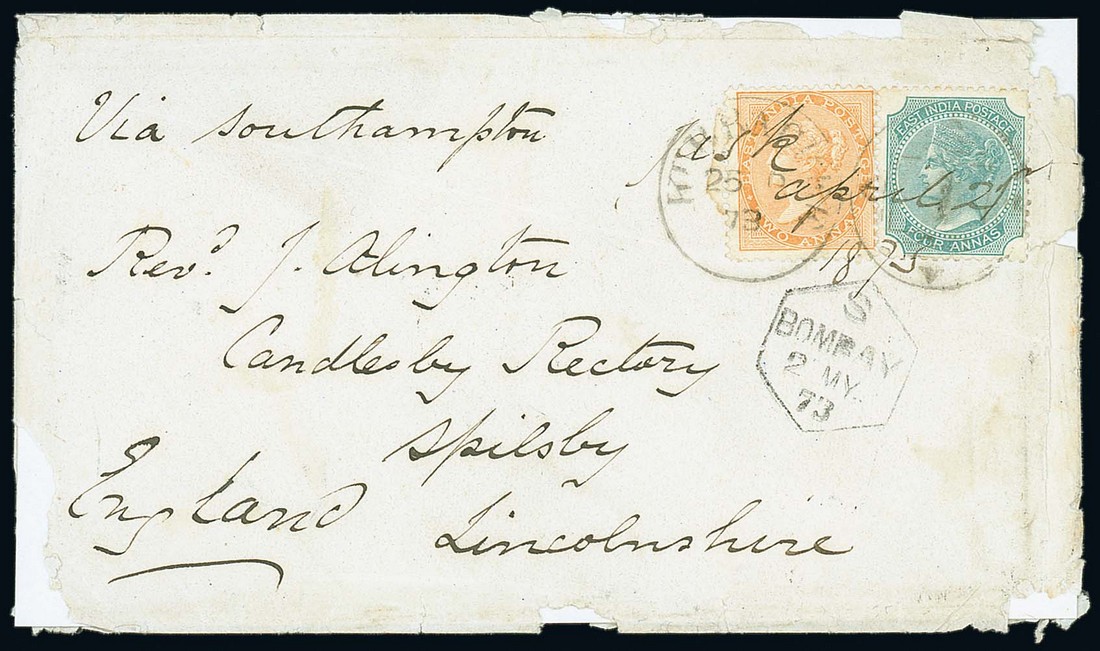 Via Southampton
Jask
april 21st
1873
EAST INDIA POSTAGE
TWO ANNAS
EAST INDIA POSTAGE
FOUR ANNAS
25
73
Revd. J. Alington
Candlesby Rectory
Spilsby
Lincolnshire
England
S
BOMBAY
2 MY.
73